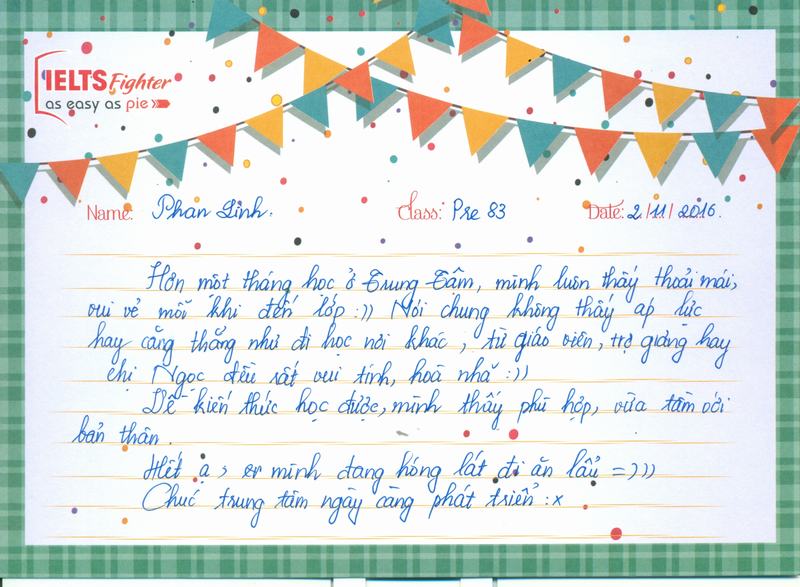 IELTS Fighter
as easy as pie
Name: Phan Linh. Class: Pre 83 Date: 2/11/2016.
Hơn một tháng học ở Trung Tâm, mình luôn thấy thoải mái,
vui vẻ mỗi khi đến lớp :)) Nói chung không thấy áp lực
hay căng thẳng như đi học nơi khác, từ giáo viên, trợ giảng hay
chị Ngọc đều rất vui tính, hoà nhã :))
Về kiến thức học được, mình thấy phù hợp, vừa tầm với
bản thân.
Hết ạ, mình đang hóng lát đi ăn lẩu =)))
Chúc trung tâm ngày càng phát triển :x